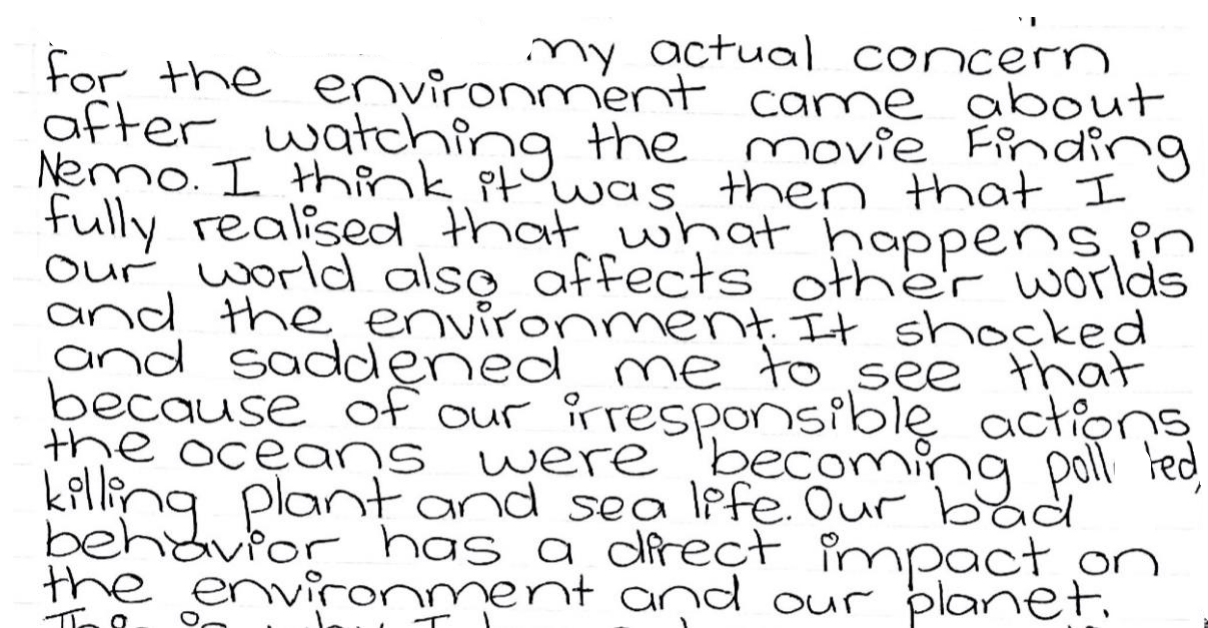 my actual concern
for the environment came about
after watching the movie Finding
Nemo. I think it was then that I
fully realised that what happens in
our world also affects other worlds
and the environment. It shocked
and saddened me to see that
because of our irresponsible actions
the oceans were becoming
killing plant and sea life. Our bad
behavior has a direct impact on
the environment and our planet.